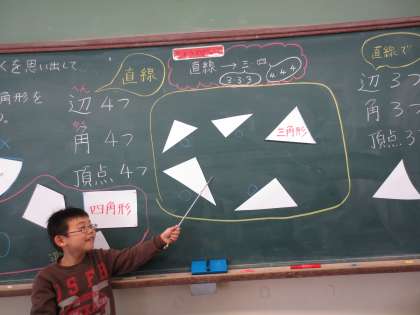 くを思い出して
角形を
直線
へん
辺4つ
かく
角4つ
頂点4つ
四角形
直線→三・四
3 3 3
4 4 4
三角形
直線で
辺3つ
角3
頂点3